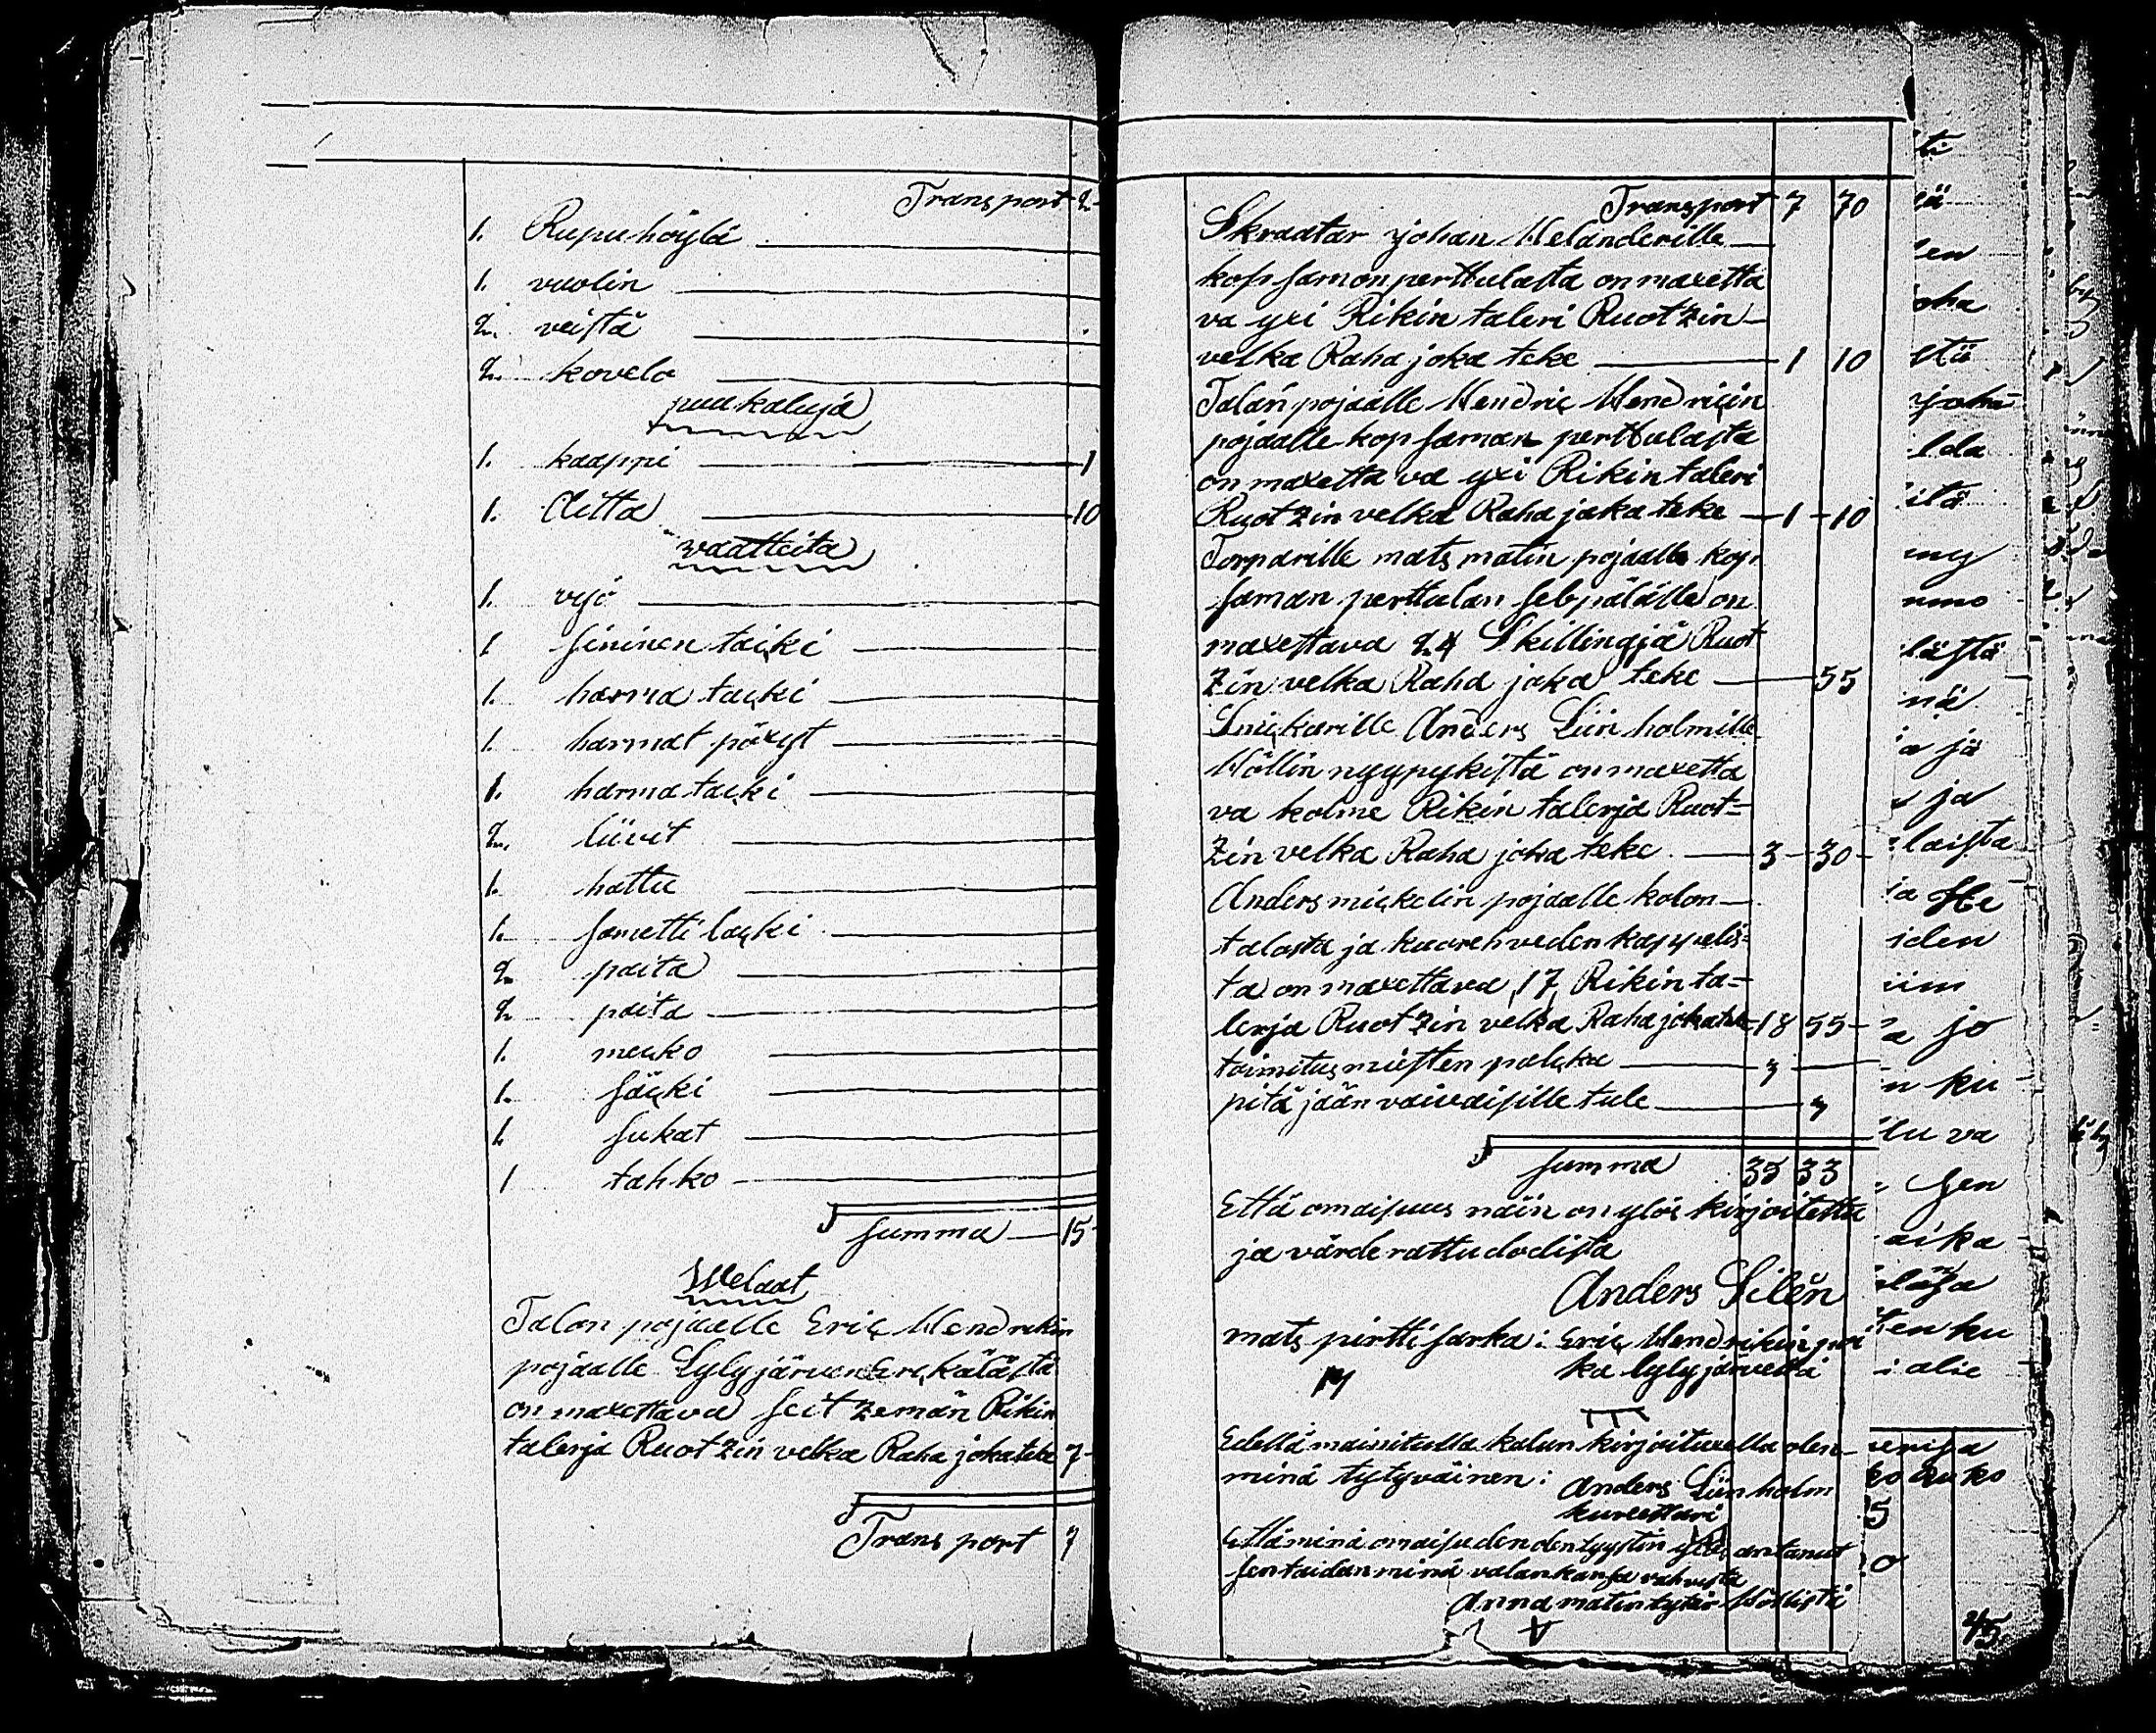 Transport 2
1. Rupu höylä
1. vuolin
2. veistä
2. kovelo
puu kaluja
1. kaappi 1
1. Aitta 10
vaatteita
1. vyö
1 sininen takki
1. harma takki
1. harmat pöxyt
1. harma takki
2. liivit
1. hattu
1. sametti lakki
2 paita
2 paita
1. mekko
1. säkki
1 sukat
1 tahko
summa 15
Welaat
Talon pojaalle Eric Hendrikin
pojaalle Lylyjärven Erekälästä
on maxettava seit zemän Rikin
talerja Ruotzin velka Raha joka teke 7
Transport 7
Transport 7 70
Skraatar johan Melanderille
kop saman perttulasta on maxetta
va yxi Rikin taleri Ruotzin
velka Raha joka teke 1 10
Talan pojaalle Hendric Hendricin
pojaalle kop saman perttulasta
on maxetta va yxi Rikin taleri
Ruotzin velka Raha joka teke 1 10
Torparille mats matin pojaalle kop
saman perttulan on
maxettava 24 Skillingjä Ruot
zin velka Raha joka teke 55
Snickarille Anders Liin holmille
Wöllin nyypykistä on maxetta
va kolme Rikin talerja Ruot=
zin velka Raha joka teke 3 30
Anders mickelin pojaalle kolon
talosta ja kuorehveden kappelis=
ta on maxettava 17 Rikin ta=
lerja Ruotzin velka Raha joka teke 18 55
toimitus miesten palcka 3
pitä jään vaivaisille tule 3
summa 35 33
Että omaisuus näin on ylös kirjoitettu
ja värderattu dodista
Anders Silén
mats pirtti sarka: Eric Hendrikin poi
ka lylyjärveltä
Edellä mainitulla kalun kirjoituxella olen
minä tytyväinen: Anders Liin holm
kureettari
Että minä omaisuden den tyystin ylös antanut
sen taidan minä valan kansa vahvista
Anna matin tytär Wöllistä